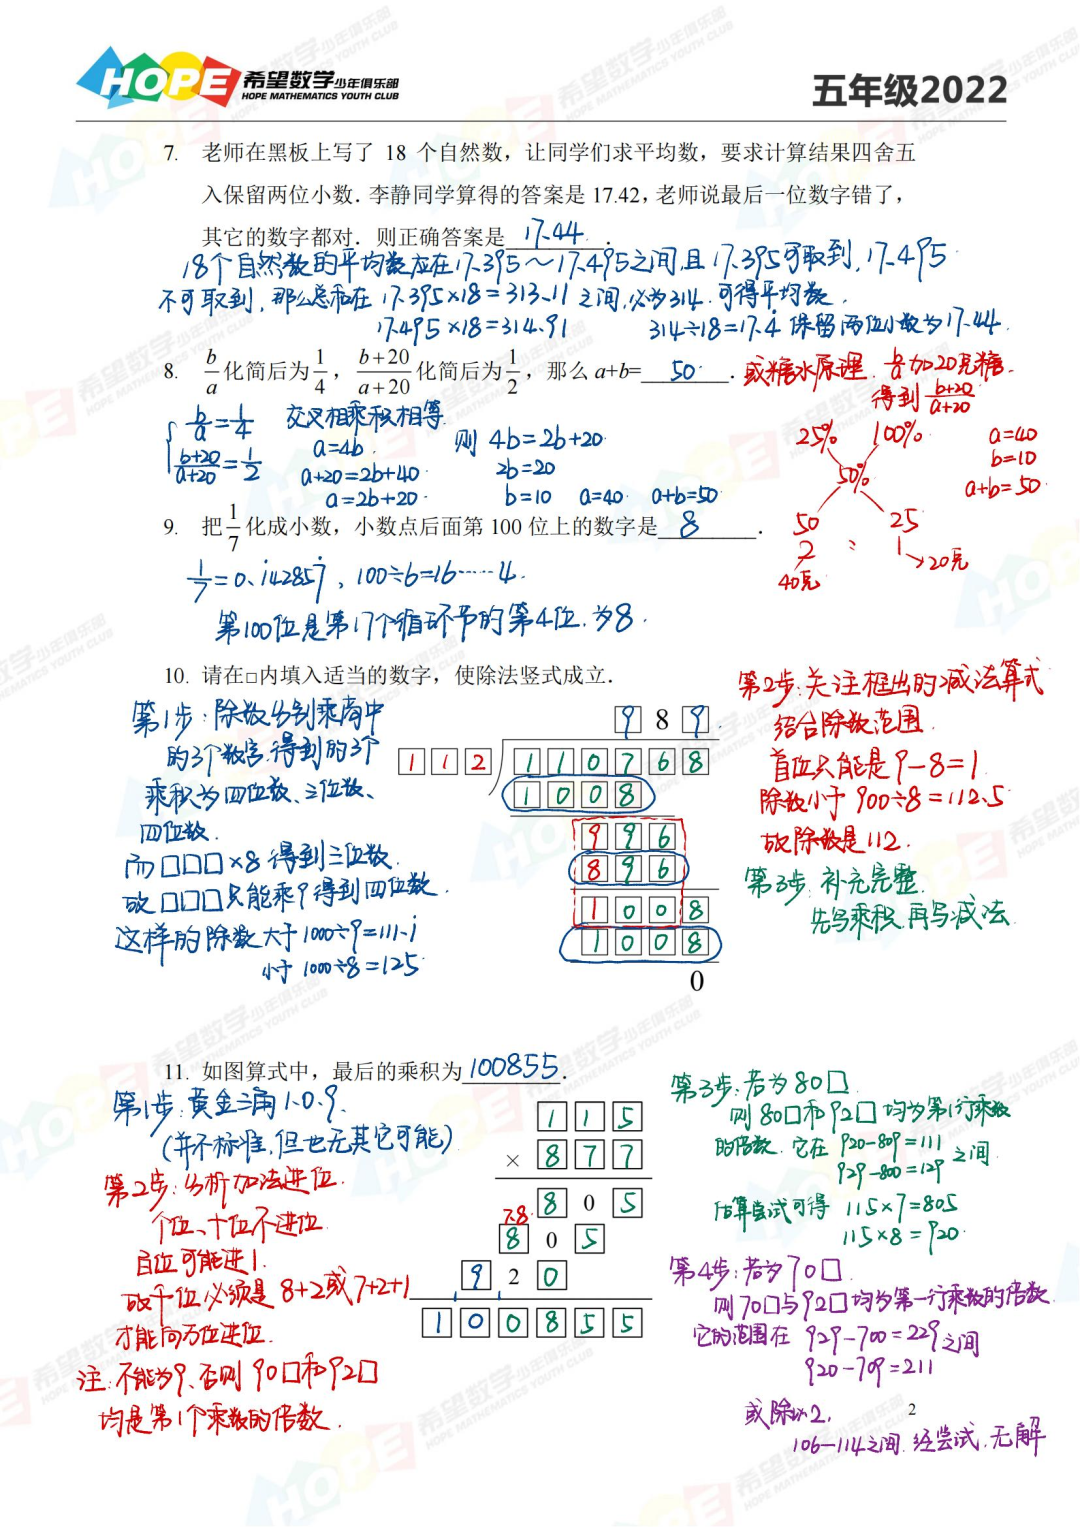 HOPE 希望数学少年俱乐部
HOPE MATHEMATICS YOUTH CLUB
五年级2022
7. 老师在黑板上写了 18 个自然数，让同学们求平均数，要求计算结果四舍五
入保留两位小数．李静同学算得的答案是 17.42，老师说最后一位数字错了，
其它的数字都对．则正确答案是 17.44 ．
18个自然数的平均数应在17.395～17.495之间,且17.395可取到,17.495
不可取到,那么总和在 17.395×18=313.11 之间,必为314.可得平均数.
17.495×18=314.91 314÷18=17.4̇ 保留两位小数为17.44.
8. b/a 化简后为 1/4，(b+20)/(a+20) 化简后为 1/2，那么 a+b= 50 ．
或糖水原理. b/a加20克糖.
得到 (b+20)/(a+20)
{ b/a=1/4 交叉相乘积相等.
(b+20)/(a+20)=1/2
a=4b
a+20=2b+40
a=2b+20
则 4b=2b+20
2b=20
b=10 a=40 a+b=50
25% 100%
50%
50 25
2 : 1→20克
40克
a=40
b=10
a+b=50
9. 把 1/7 化成小数，小数点后面第 100 位上的数字是 8 ．
1/7=0.1̇42857̇, 100÷6=16……4.
第100位是第17个循环节的第4位.为8.
10. 请在□内填入适当的数字，使除法竖式成立．
第1步:除数分别乘商中
的3个数字.得到的3个
乘积为四位数、三位数、
四位数.
而□□□×8得到三位数.
故□□□只能乘9得到四位数.
这样的除数大于1000÷9=111.1̇
小于1000÷8=125
9 8 9
1 1 2 1 1 0 7 6 8
1 0 0 8
9 9 6
8 9 6
1 0 0 8
1 0 0 8
0
第2步:关注框出的减法算式
结合除数范围.
首位只能是9-8=1
除数小于900÷8=112.5
故除数是112.
第3步:补充完整.
先写乘积.再写减法.
11. 如图算式中，最后的乘积为 100855 ．
第1步.黄金三角1.0.9.
(并不标准,但也无其它可能)
第2步:分析加法进位.
个位、十位不进位.
百位可能进1.
故千位必须是8+2或7+2+1
才能向万位进位.
注:不能为9.否则90□和92□
均是第1个乘数的倍数.
1 1 5
× 8 7 7
8 0 5
7.8.
8 0 5
9 2 0
1 0 0 8 5 5
第3步:若为80□
则80□和92□均为第1行乘数
的倍数.它在 920-809=111 之间
929-800=129
估算尝试可得 115×7=805
115×8=920.
第4步:若为70□.
则70□与92□均为第一行乘数的倍数.
它的范围在 929-700=229之间
920-709=211
或除以2.
106-114之间.经尝试.无解
2